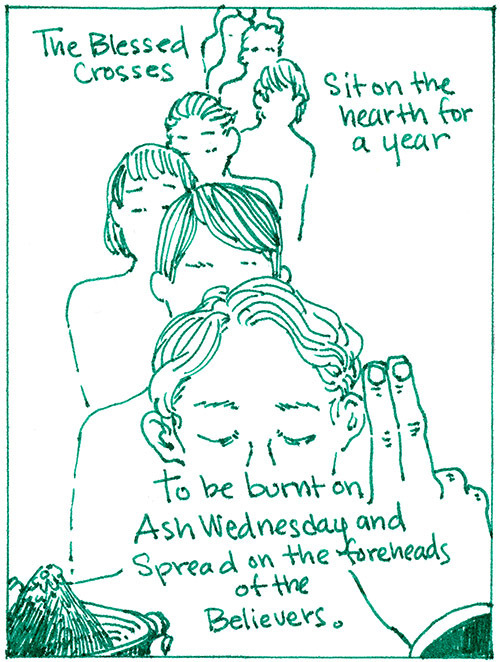 The Blessed
Crosses
Sit on the
hearth for
a year
to be burnt on
Ash Wednesday and
Spread on the foreheads
of the
Believers.